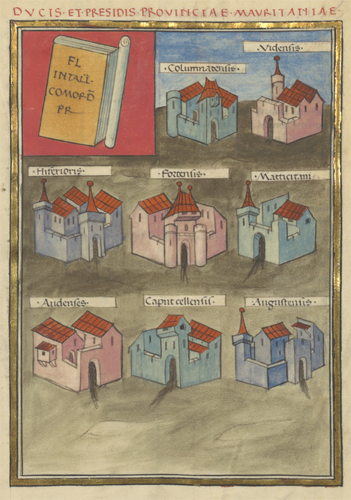 DVCIS·ET·PRESIDIS·PROVINCIAE·MAVRITANIAE·
FL
INTALL·
COMORD
PR·
·Columnatensis·
·Videnſis·
·Inferioris·
·Fortenſis·
·Mutticitani·
·Audenſes·
Caput cellenſis·
·Auguſtenſis·